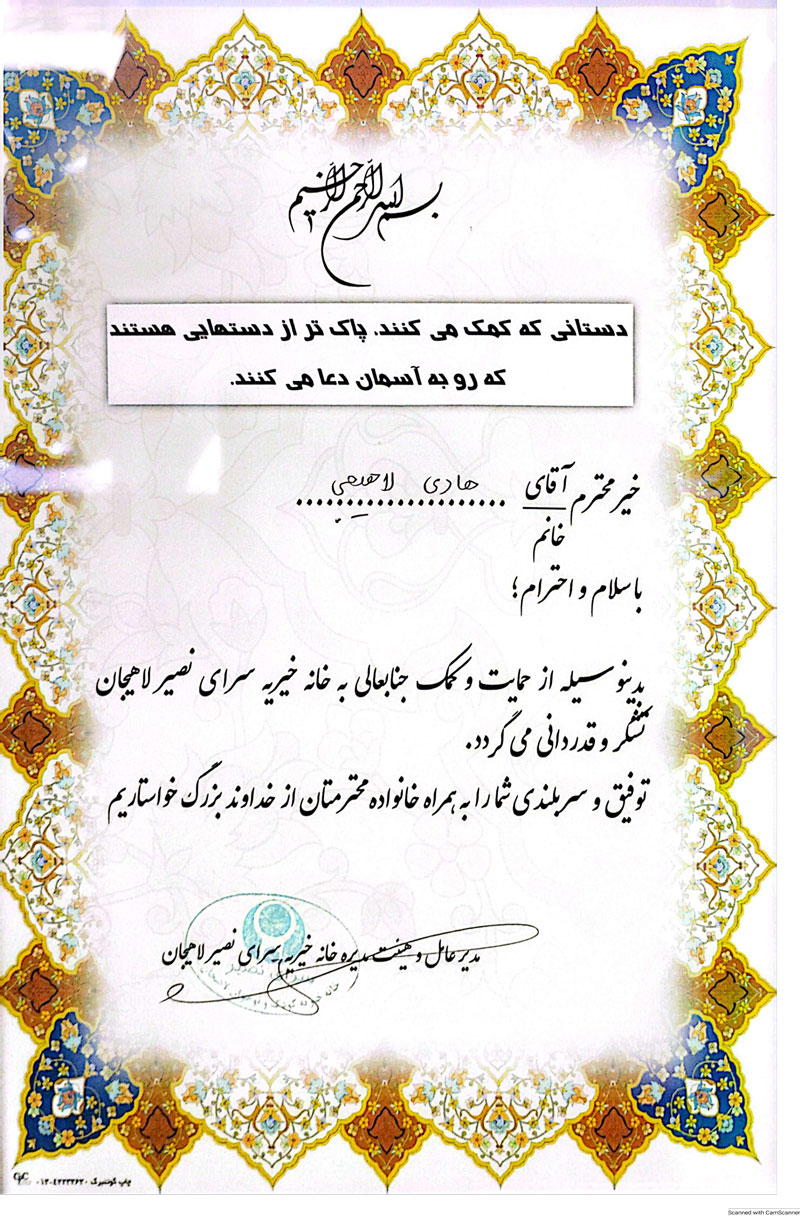 بسم الله الرحمن الرحیم
دستانی که کمک می کنند، پاک تر از دستهایی هستند
که رو به آسمان دعا می کنند.
خیر محترم آقای هادی لاهیجی
خانم
با سلام و احترام؛
بدینوسیله از حمایت و کمک جنابعالی به خانه خیریه سرای نصیر لاهیجان
تشکر و قدردانی می گردد.
توفیق و سربلندی شما را به همراه خانواده محترمتان از خداوند بزرگ خواستاریم
مدیر عامل و هیئت مدیره خانه خیریه سرای نصیر لاهیجان
چاپ گوتنبرگ ۰۱۳۰۴۲۲۳۳۶۲۰
Scanned with CamScanner